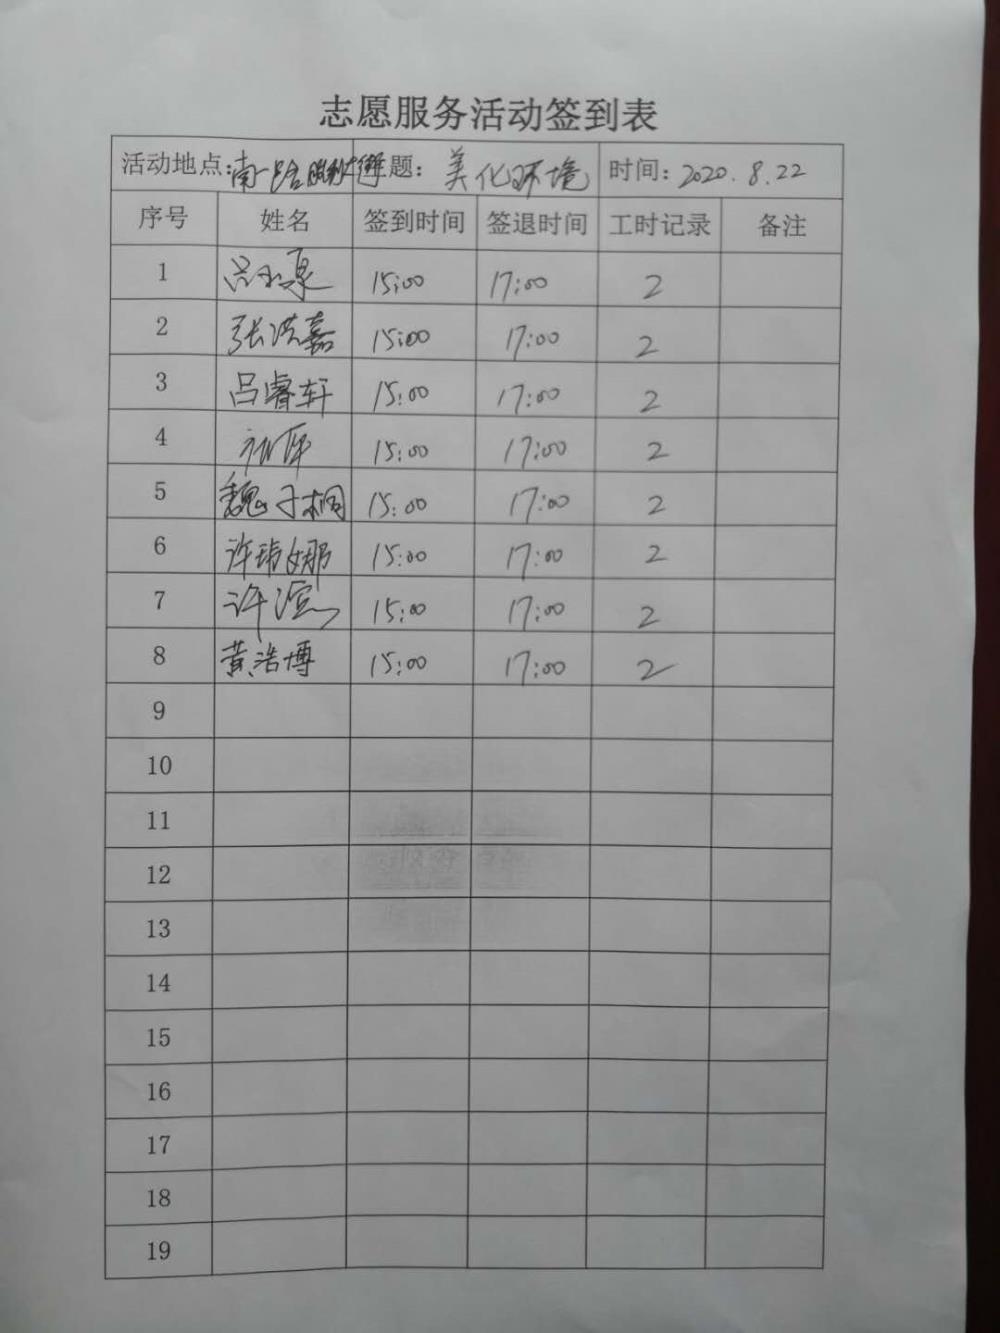 志愿服务活动签到表
活动地点: 南一路 题: 美化环境 时间: 2020.8.22
序号 姓名 签到时间 签退时间 工时记录 备注
1 15:00 17:00 2
2 张洪嘉 15:00 17:00 2
3 吕睿轩 15:00 17:00 2
4 15:00 17:00 2
5 魏子桐 15:00 17:00 2
6 许玮娜 15:00 17:00 2
7 许 15:00 17:00 2
8 黄浩博 15:00 17:00 2
9
10
11
12
13
14
15
16
17
18
19